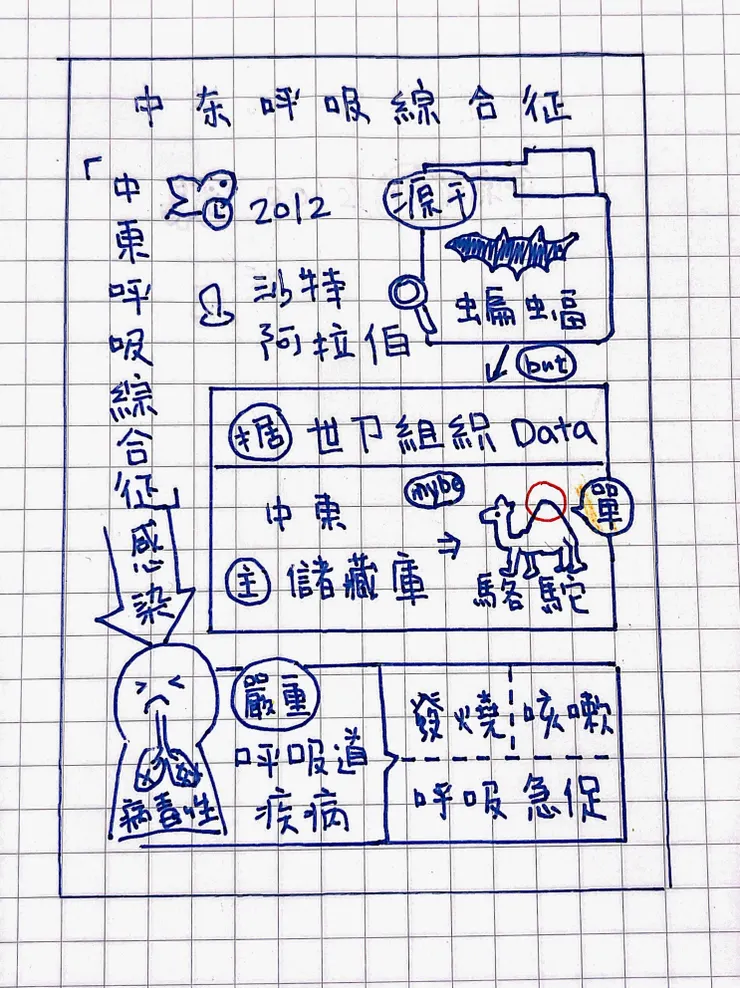 中东呼吸綜合征
「中東呼吸綜合征」感染
2012
沙特
阿拉伯
源于
蝙蝠
but
据世卫組織Data
中東
主儲藏庫
mybe
單
駱駝
病毒性
嚴重
呼吸道
疾病
發燒
咳嗽
呼吸急促